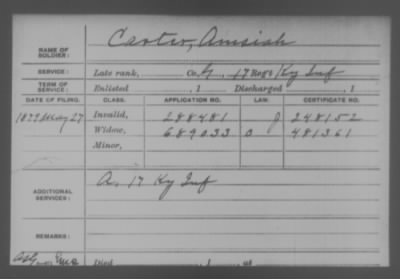 NAME OF SOLDIER: Carter, Amsiah
SERVICE: Late rank, Co. G, 17 Reg't Ky Inf
TERM OF SERVICE: Enlisted , 1 Discharged , 1
DATE OF FILING. CLASS. APPLICATION NO. LAW. CERTIFICATE NO.
1879 May 27 Invalid, 288481 J 248152
Widow, 689033 O 481361
Minor,
ADDITIONAL SERVICES: A. 17 Ky Inf
REMARKS:
Died 1 at